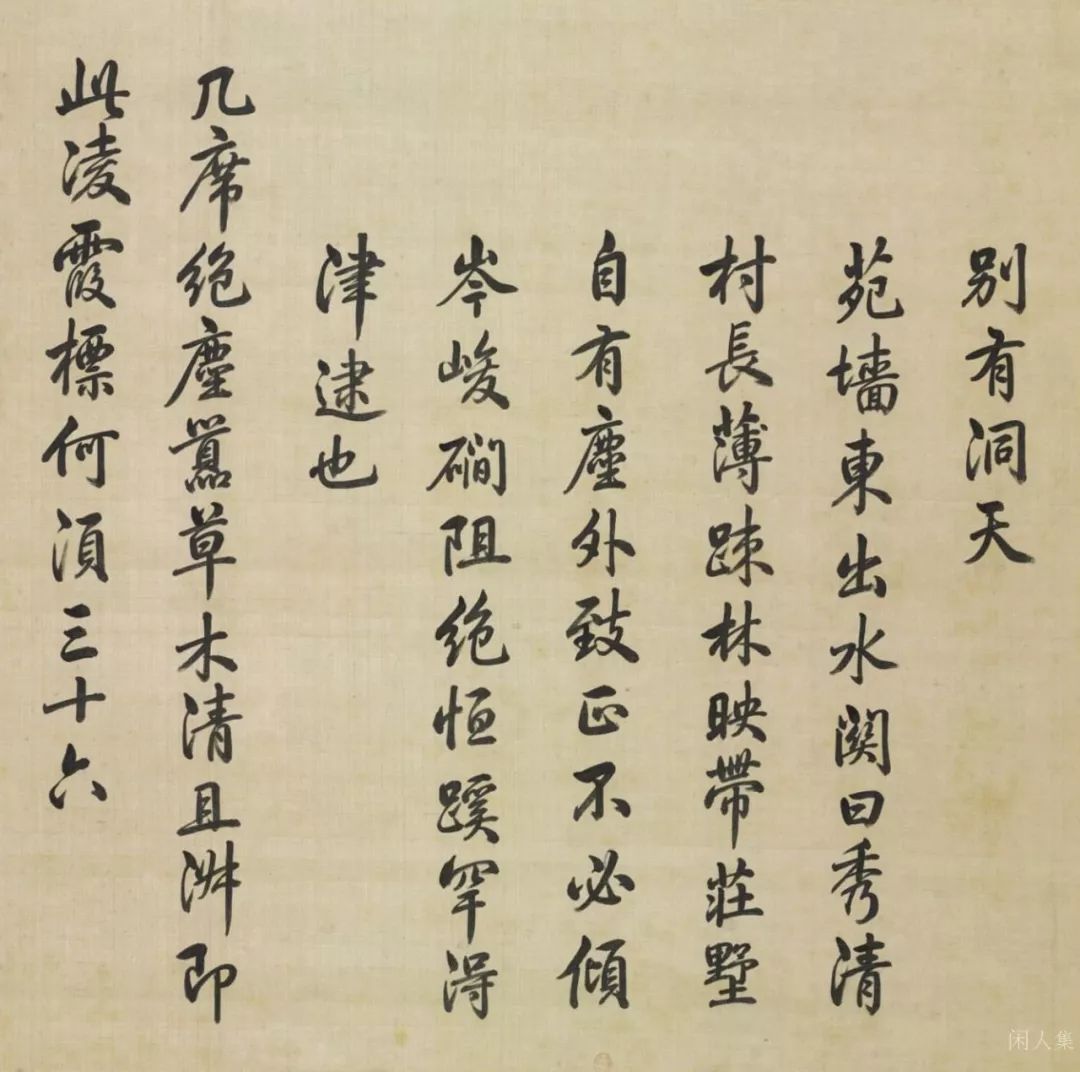 別有洞天
苑墻東出水關曰秀清
村長薄疎林映帶莊墅
自有塵外致正不必傾
岑峻磵阻絕恒蹊罕得
津逮也
几席絕塵囂草木清且淑即
此淩霞標何須三十六
闲人集